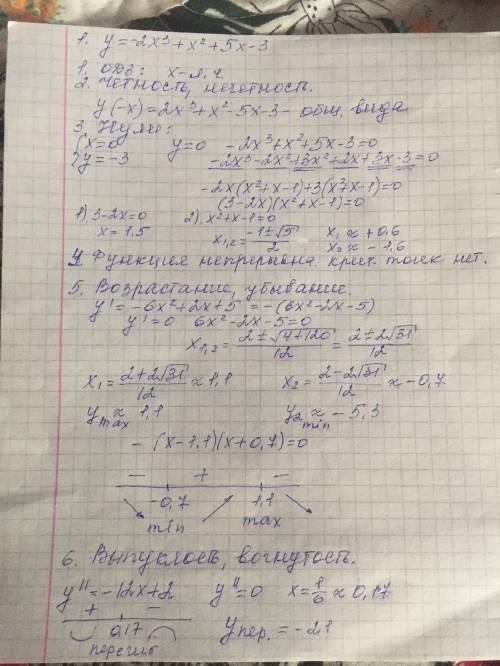 1. y=-2x³+x²+5x-3
1. ОДЗ: x-л.ч.
2. Четность, нечетность.
y(-x)=2x³+x²-5x-3- общ. вида
3. Нули:
{x=0 y=0 -2x³+x²+5x-3=0
{y=-3 -2x³-2x²+3x²+2x+3x-3=0
-2x(x²+x-1)+3(x²+x-1)=0
(3-2x)(x²+x-1)=0
1) 3-2x=0 2) x²+x-1=0
x=1,5 x₁,₂=(-1±√5)/2 x₁≈+0,6
x₂≈-1,6
4. Функция непрерывна. крит. точек нет.
5. Возрастание, убывание.
y'=-6x²+2x+5=-(6x²-2x-5)
y'=0 6x²-2x-5=0
x₁,₂=(2±√(4+120))/12=(2±2√31)/12
x₁=(2+2√31)/12≈1,1 x₂=(2-2√31)/12≈-0,7
y max≈1,1 y₂ min≈-5,3
-(x-1,1)(x+0,7)=0
- + -
-0,7 1,1
min max
6. Выпуклость, вогнутость.
y''=-12x+2 y''=0 x=1/6≈0,17
+ -
0,17 yпер.=-2,1
перегиб